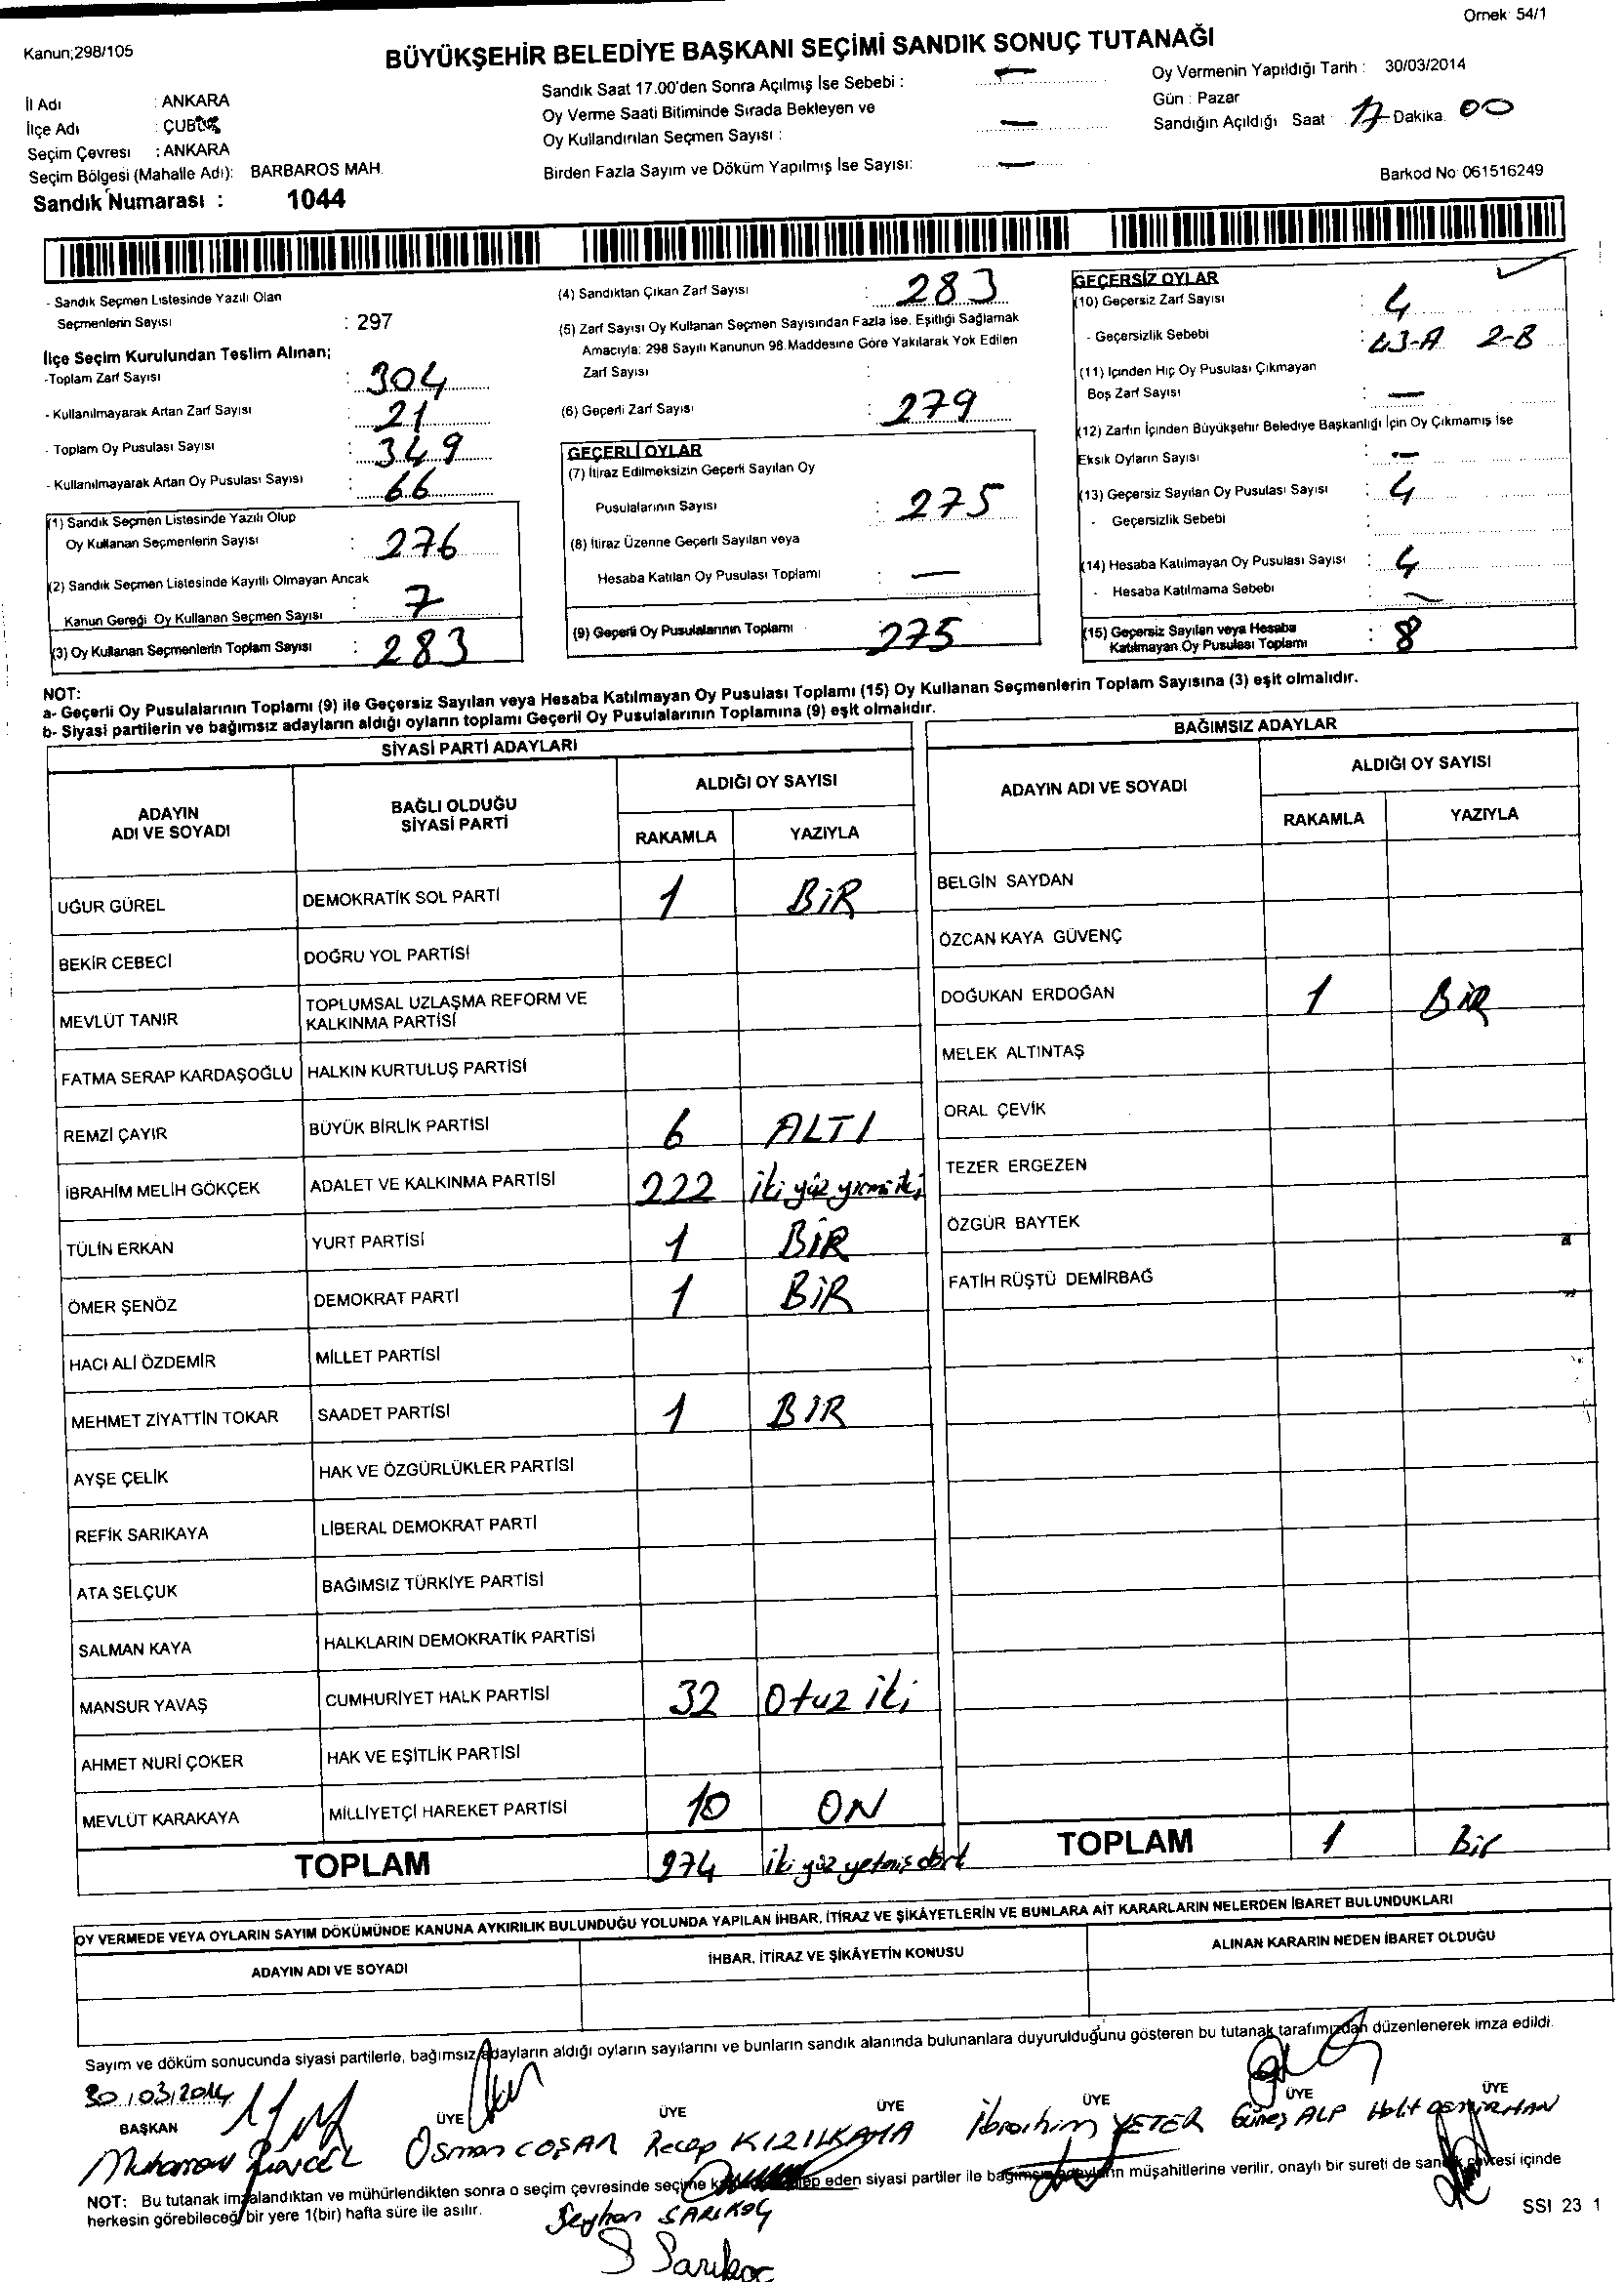 Ornek 54/1
Kanun;298/105
BÜYÜKŞEHİR BELEDİYE BAŞKANI SEÇİMİ SANDIK SONUÇ TUTANAĞI
İl Adı : ANKARA
İlçe Adı : ÇUBUK
Seçim Çevresi : ANKARA
Seçim Bölgesi (Mahalle Adı): BARBAROS MAH.
Sandık Numarası : 1044
Sandık Saat 17.00'den Sonra Açılmış İse Sebebi : —
Oy Verme Saati Bitiminde Sırada Bekleyen ve
Oy Kullandırılan Seçmen Sayısı : —
Birden Fazla Sayım ve Döküm Yapılmış İse Sayısı: —
Oy Vermenin Yapıldığı Tarih : 30/03/2014
Gün : Pazar
Sandığın Açıldığı Saat 17 Dakika 00
Barkod No 061516249
- Sandık Seçmen Listesinde Yazılı Olan
Seçmenlerin Sayısı : 297
İlçe Seçim Kurulundan Teslim Alınan;
-Toplam Zarf Sayısı : 304
- Kullanılmayarak Artan Zarf Sayısı : 21
- Toplam Oy Pusulası Sayısı : 349
- Kullanılmayarak Artan Oy Pusulası Sayısı : 66
(1) Sandık Seçmen Listesinde Yazılı Olup
Oy Kullanan Seçmenlerin Sayısı : 276
(2) Sandık Seçmen Listesinde Kayıtlı Olmayan Ancak
Kanun Gereği Oy Kullanan Seçmen Sayısı : 7
(3) Oy Kullanan Seçmenlerin Toplam Sayısı : 283
(4) Sandıktan Çıkan Zarf Sayısı : 283
(5) Zarf Sayısı Oy Kullanan Seçmen Sayısından Fazla İse. Eşitliği Sağlamak
Amacıyla: 298 Sayılı Kanunun 98.Maddesine Göre Yakılarak Yok Edilen
Zarf Sayısı :
(6) Geçerli Zarf Sayısı : 279
GEÇERLİ OYLAR
(7) İtiraz Edilmeksizin Geçerli Sayılan Oy
Pusulalarının Sayısı : 275
(8) İtiraz Üzerine Geçerli Sayılan veya
Hesaba Katılan Oy Pusulası Toplamı : —
(9) Geçerli Oy Pusulalarının Toplamı : 275
GEÇERSİZ OYLAR
(10) Geçersiz Zarf Sayısı : 4
- Geçersizlik Sebebi : 2-B
(11) İçinden Hiç Oy Pusulası Çıkmayan
Boş Zarf Sayısı : —
(12) Zarfın İçinden Büyükşehir Belediye Başkanlığı İçin Oy Çıkmamış İse
Eksik Oyların Sayısı : —
(13) Geçersiz Sayılan Oy Pusulası Sayısı : 4
- Geçersizlik Sebebi :
(14) Hesaba Katılmayan Oy Pusulası Sayısı : 4
- Hesaba Katılmama Sebebi : —
(15) Geçersiz Sayılan veya Hesaba
Katılmayan Oy Pusulası Toplamı : 8
NOT:
a- Geçerli Oy Pusulalarının Toplamı (9) ile Geçersiz Sayılan veya Hesaba Katılmayan Oy Pusulası Toplamı (15) Oy Kullanan Seçmenlerin Toplam Sayısına (3) eşit olmalıdır.
b- Siyasi partilerin ve bağımsız adayların aldığı oyların toplamı Geçerli Oy Pusulalarının Toplamına (9) eşit olmalıdır.
SİYASİ PARTİ ADAYLARI
ADAYIN ADI VE SOYADI BAĞLI OLDUĞU SİYASİ PARTİ ALDIĞI OY SAYISI
RAKAMLA YAZIYLA
UĞUR GÜREL DEMOKRATİK SOL PARTİ 1 BİR
BEKİR CEBECİ DOĞRU YOL PARTİSİ
MEVLÜT TANIR TOPLUMSAL UZLAŞMA REFORM VE KALKINMA PARTİSİ
FATMA SERAP KARDAŞOĞLU HALKIN KURTULUŞ PARTİSİ
REMZİ ÇAYIR BÜYÜK BİRLİK PARTİSİ 6 ALTI
İBRAHİM MELİH GÖKÇEK ADALET VE KALKINMA PARTİSİ 222 iki yüz yirmi iki
TÜLİN ERKAN YURT PARTİSİ 1 BİR
ÖMER ŞENÖZ DEMOKRAT PARTİ 1 BİR
HACI ALİ ÖZDEMİR MİLLET PARTİSİ
MEHMET ZİYATTİN TOKAR SAADET PARTİSİ 1 BİR
AYŞE ÇELİK HAK VE ÖZGÜRLÜKLER PARTİSİ
REFİK SARIKAYA LİBERAL DEMOKRAT PARTİ
ATA SELÇUK BAĞIMSIZ TÜRKİYE PARTİSİ
SALMAN KAYA HALKLARIN DEMOKRATİK PARTİSİ
MANSUR YAVAŞ CUMHURİYET HALK PARTİSİ 32 Otuz iki
AHMET NURİ ÇOKER HAK VE EŞİTLİK PARTİSİ
MEVLÜT KARAKAYA MİLLİYETÇİ HAREKET PARTİSİ 10 ON
TOPLAM 274 iki yüz yetmiş dört
BAĞIMSIZ ADAYLAR
ADAYIN ADI VE SOYADI ALDIĞI OY SAYISI
RAKAMLA YAZIYLA
BELGİN SAYDAN
ÖZCAN KAYA GÜVENÇ
DOĞUKAN ERDOĞAN 1 BİR
MELEK ALTINTAŞ
ORAL ÇEVİK
TEZER ERGEZEN
ÖZGÜR BAYTEK
FATİH RÜŞTÜ DEMİRBAĞ
TOPLAM 1 Bir
OY VERMEDE VEYA OYLARIN SAYIM DÖKÜMÜNDE KANUNA AYKIRILIK BULUNDUĞU YOLUNDA YAPILAN İHBAR, İTİRAZ VE ŞİKÂYETLERİN VE BUNLARA AİT KARARLARIN NELERDEN İBARET BULUNDUKLARI
ADAYIN ADI VE SOYADI İHBAR, İTİRAZ VE ŞİKÂYETİN KONUSU ALINAN KARARIN NEDEN İBARET OLDUĞU
Sayım ve döküm sonucunda siyasi partilerle, bağımsız adayların aldığı oyların sayılarını ve bunların sandık alanında bulunanlara duyurulduğunu gösteren bu tutanak tarafımızdan düzenlenerek imza edildi.
30/03/2014
BAŞKAN ÜYE ÜYE ÜYE ÜYE ÜYE ÜYE
Osman COŞAR Recep KIZILKAYA İbrahim YETER Güneş ALP Halit DEMİRHAN
NOT: Bu tutanak imzalandıktan ve mühürlendikten sonra o seçim çevresinde seçime eden siyasi partiler ile bağımsız adayların müşahitlerine verilir, onaylı bir sureti de sandık çevresi içinde
herkesin görebileceği bir yere 1(bir) hafta süre ile asılır.
Seyhan SARIKOÇ
S Sarıkoç
SSI 23 1